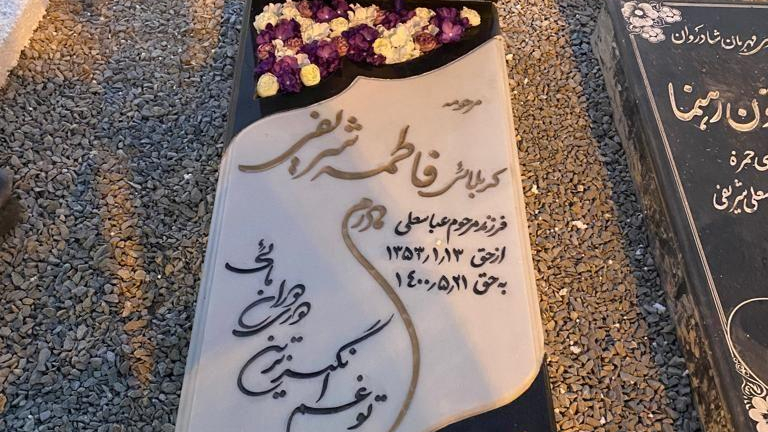 مرحومه
کربلائی فاطمه شریفی
فرزند مرحوم عباسعلی
از حق ۱۳۵۳٫۱٫۱۳
به حق ۱۴۰۰٫۵٫۲۱
مادرم
تو غم انگیزترین
دوری دوران هائی
قهرمان شادروان
رهنما
ی حمزه
علی شریفی